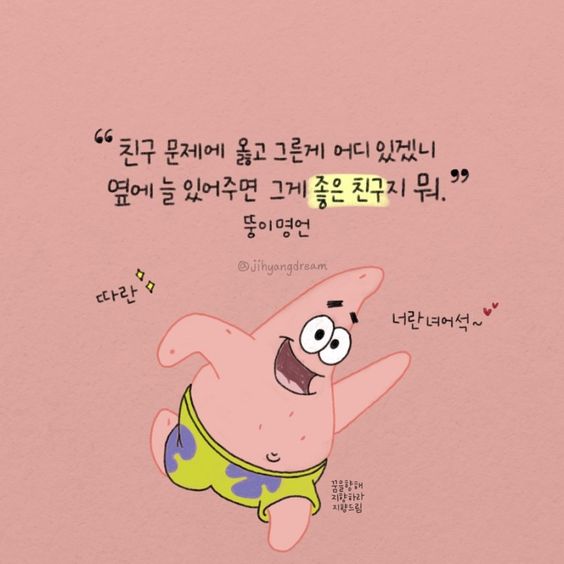 “ 친구 문제에 옳고 그른게 어디 있겠니
옆에 늘 있어주면 그게 좋은 친구지 뭐. ”
뚱이명언
@jihyangdream
따란
너란녀어석~
꿈을향해
지향하라
지향드림